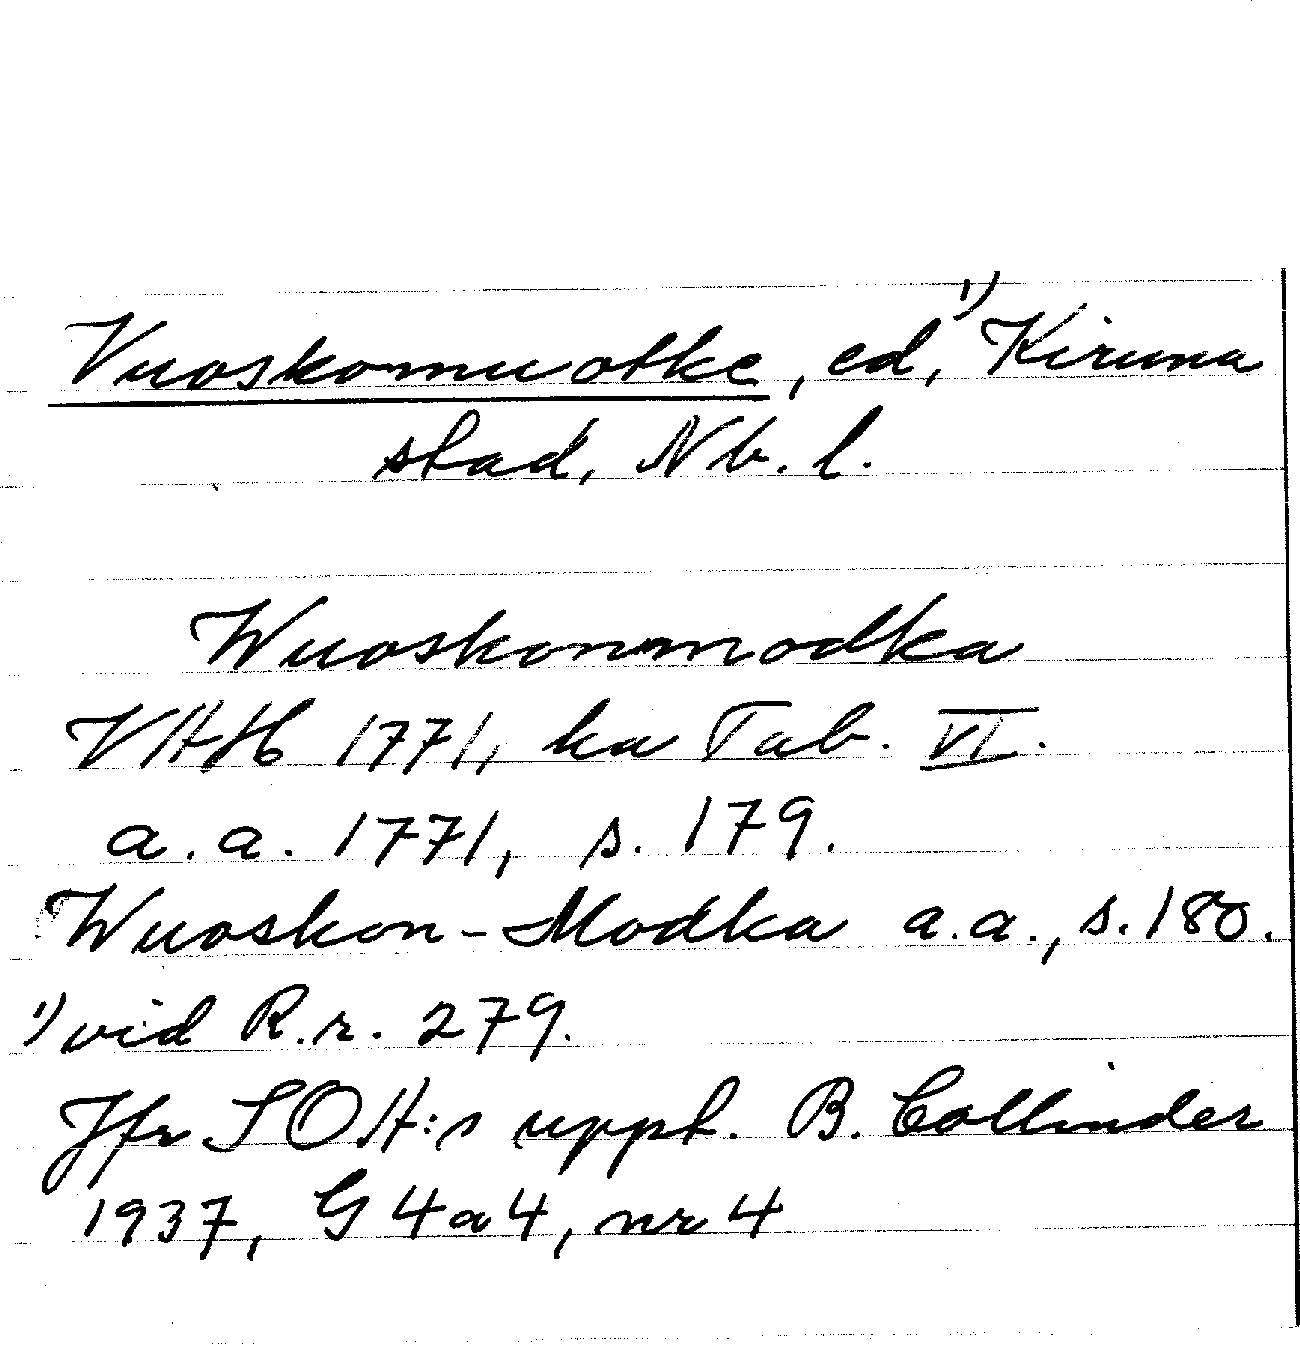 Vuoskomuotke, ed,¹⁾ Kiruna
stad, Nb. l.
Wuoskonmodka
VAH 1771, ka Tab. VI.
a.a. 1771, s. 179.
Wuoskon-Modka a.a., s. 180.
¹⁾ vid R.r. 279.
Jfr SOA:s uppt. B. Collinder
1937, G 4a4, nr 4